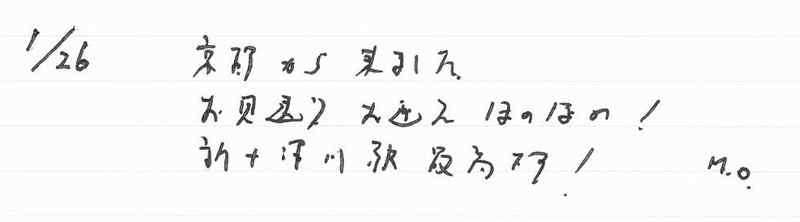 1/26 京都から来ました
お見送り お迎え ほのぼの!
新十津川駅 最高です! M.O.